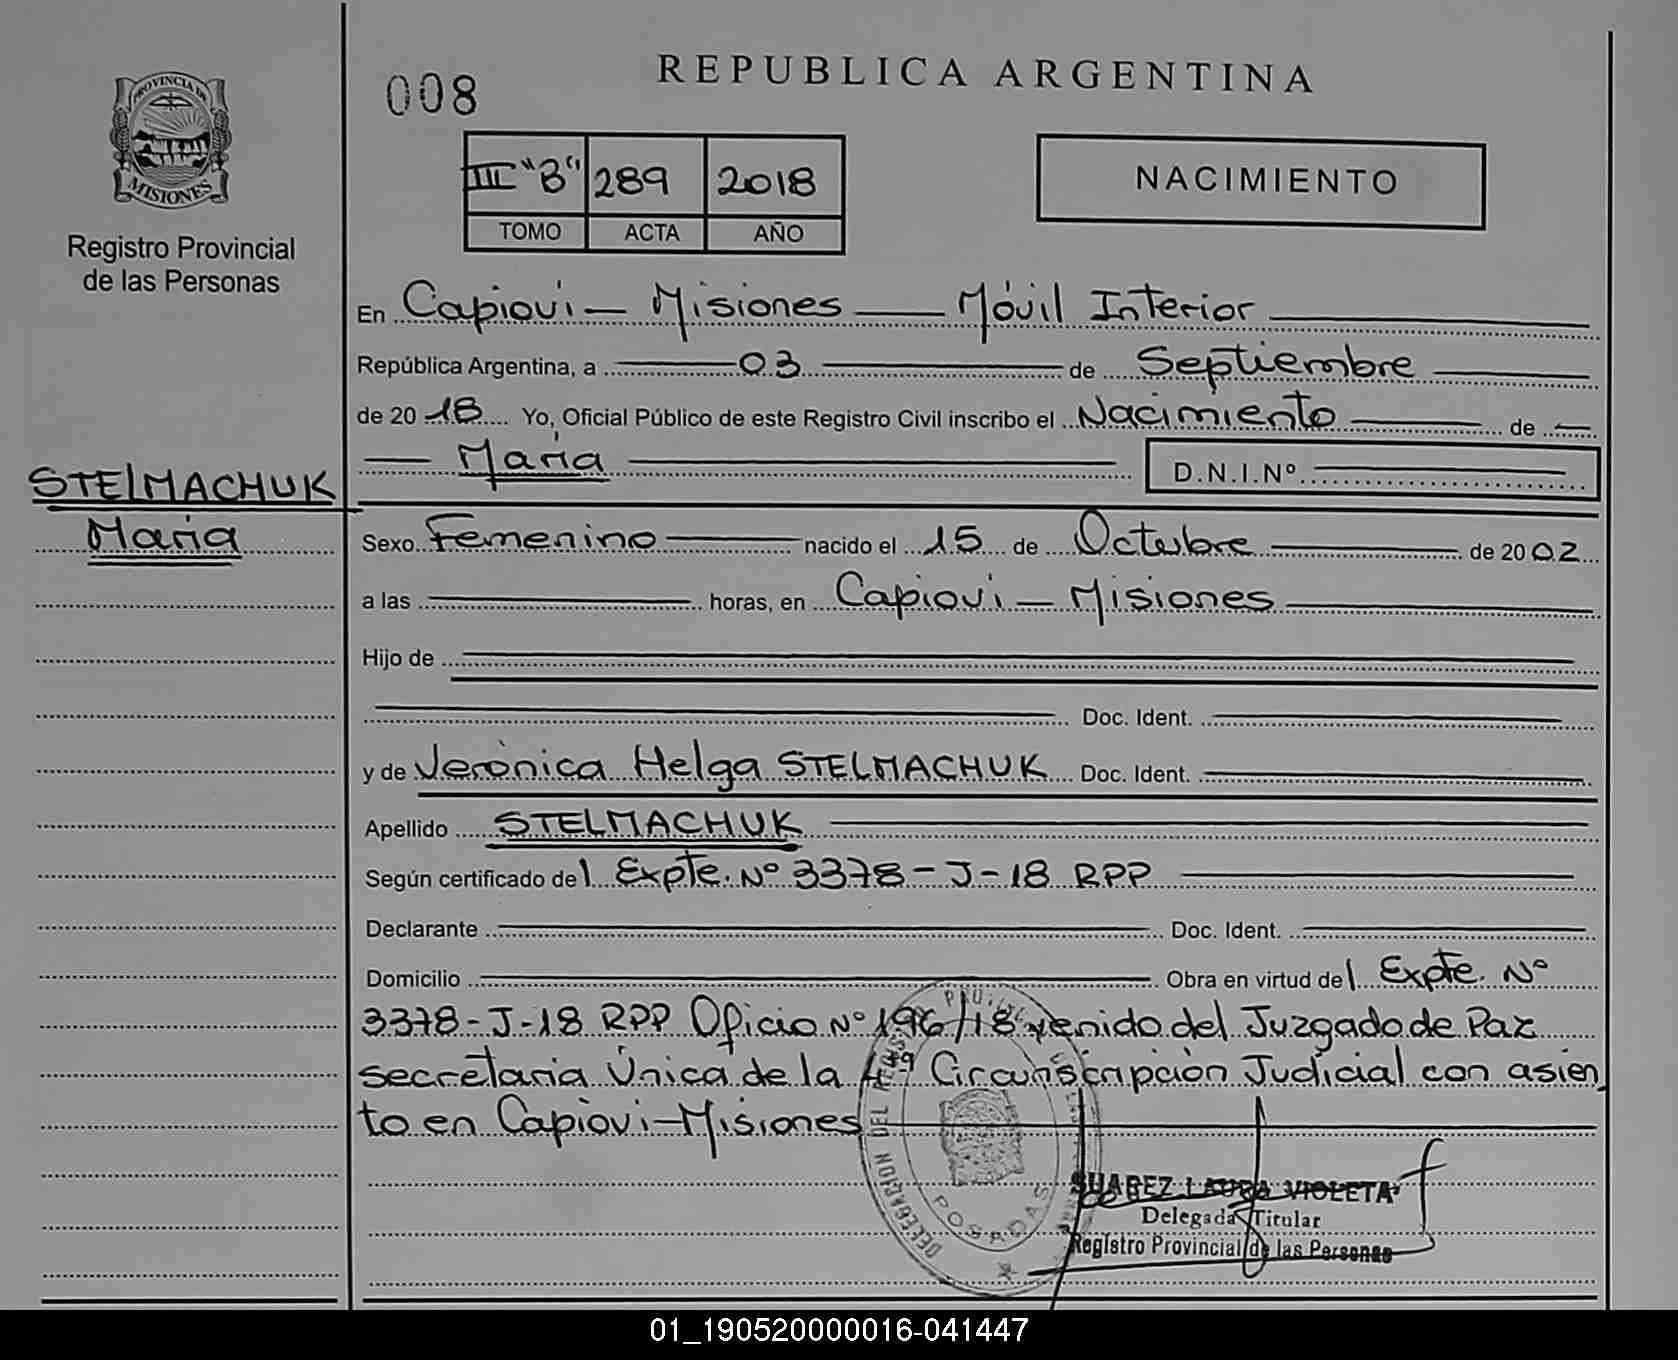 REPUBLICA ARGENTINA
008
PROVINCIA DE
MISIONES
Registro Provincial
de las Personas
III "B" 289 2018
TOMO ACTA AÑO
NACIMIENTO
En Capioví — Misiones — Móvil Interior
República Argentina, a 03 de Septiembre
de 2018 Yo, Oficial Público de este Registro Civil inscribo el Nacimiento de
María
D.N.I.Nº
STELMACHUK
María
Sexo Femenino nacido el 15 de Octubre de 2002
a las horas, en Capioví — Misiones
Hijo de
Doc. Ident.
y de Verónica Helga STELMACHUK Doc. Ident.
Apellido STELMACHUK
Según certificado del Expte. Nº 3378-J-18 RPP
Declarante Doc. Ident.
Domicilio Obra en virtud del Expte. Nº
3378-J-18 RPP Oficio Nº 196/18 venido del Juzgado de Paz
secretaria Única de la Circunscripción Judicial con asien
to en Capioví-Misiones
DELEGACION DEL
POSADAS
SUAREZ LAURA VIOLETA
Delegada Titular
Registro Provincial de las Personas
01_190520000016-041447